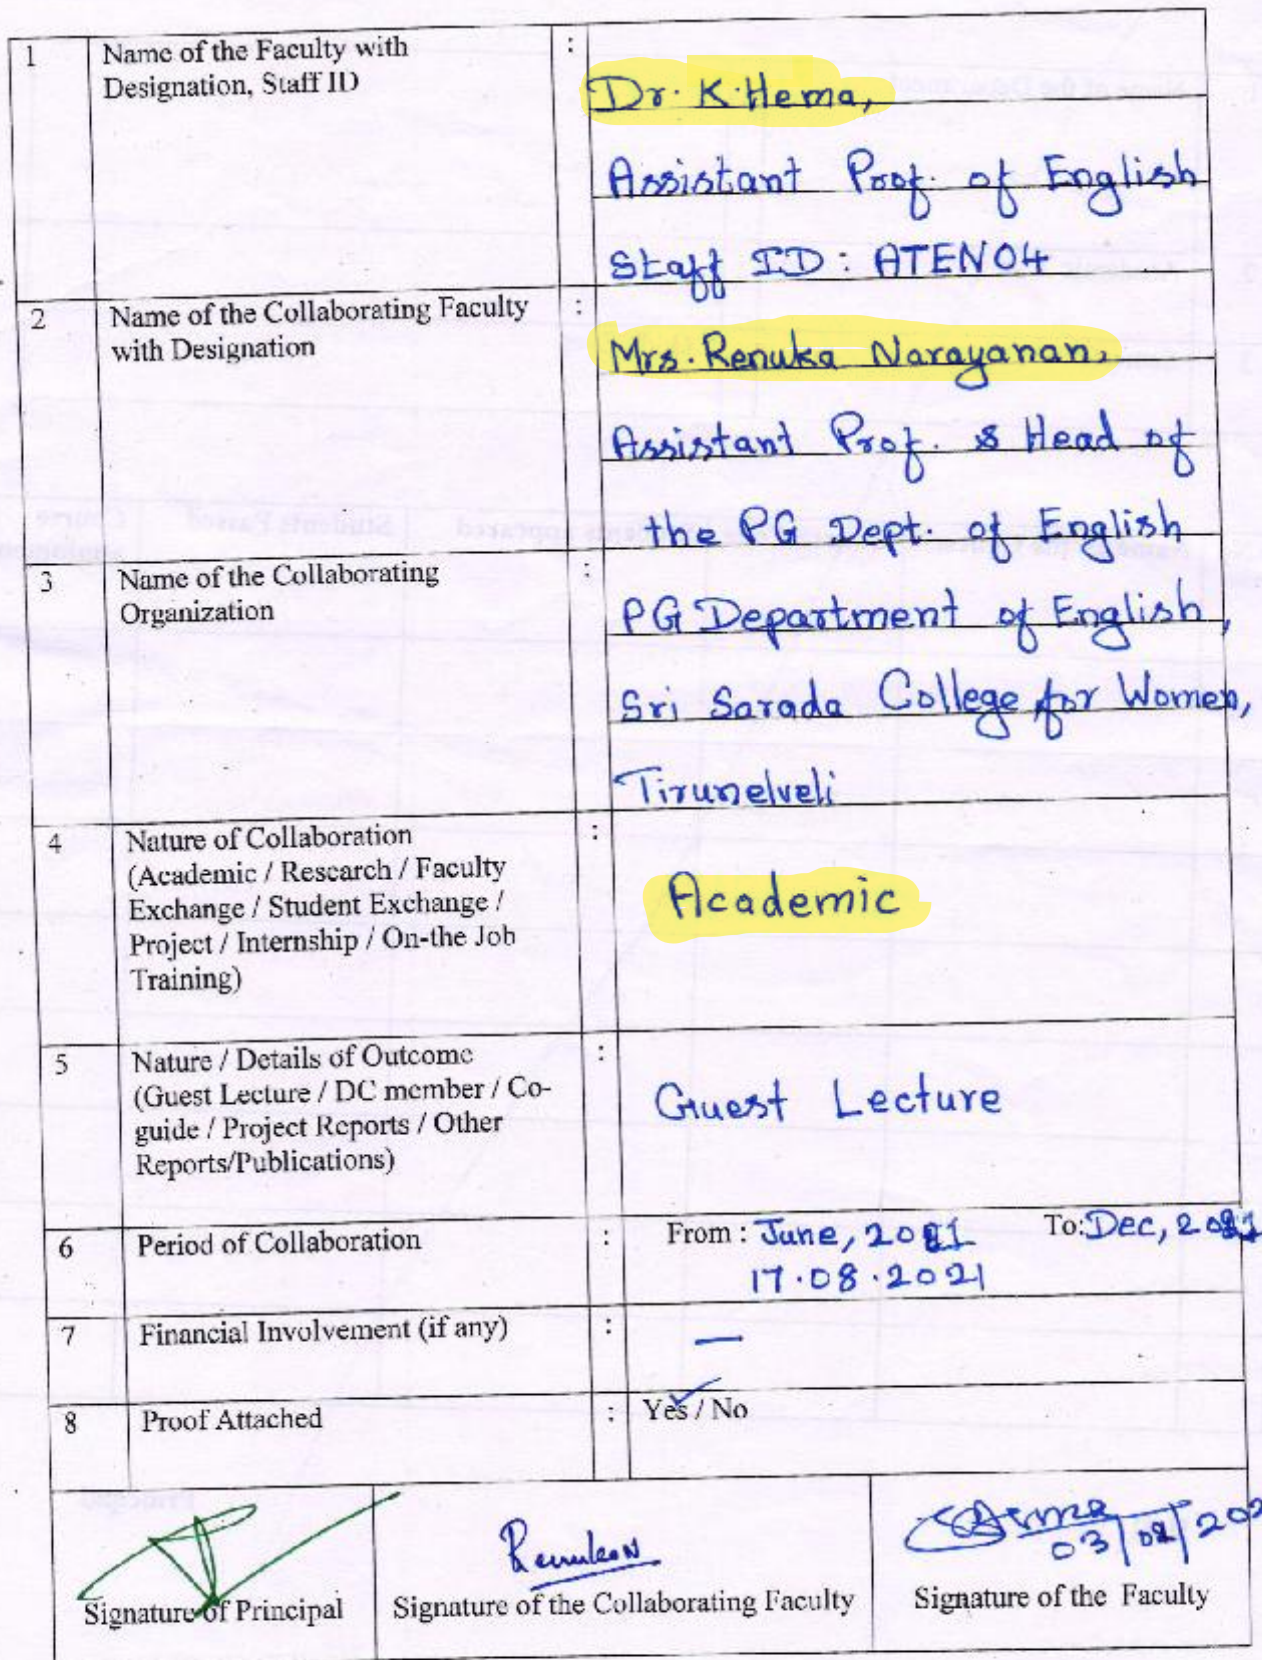 1 Name of the Faculty with : Dr. K. Hema,
Designation, Staff ID
Assistant Prof. of English
Staff ID : ATEN04
2 Name of the Collaborating Faculty :
with Designation Mrs. Renuka Narayanan,
Assistant Prof. & Head of
the PG Dept. of English
3 Name of the Collaborating :
Organization PG Department of English,
Sri Sarada College for Women,
Tirunelveli
4 Nature of Collaboration :
(Academic / Research / Faculty
Exchange / Student Exchange / Academic
Project / Internship / On-the Job
Training)
5 Nature / Details of Outcome :
(Guest Lecture / DC member / Co-
guide / Project Reports / Other Guest Lecture
Reports/Publications)
6 Period of Collaboration : From : June, 2021 To: Dec, 2021
17.08.2021
7 Financial Involvement (if any) : —
8 Proof Attached : Yes / No
03/02/202
Signature of Principal Signature of the Collaborating Faculty Signature of the Faculty